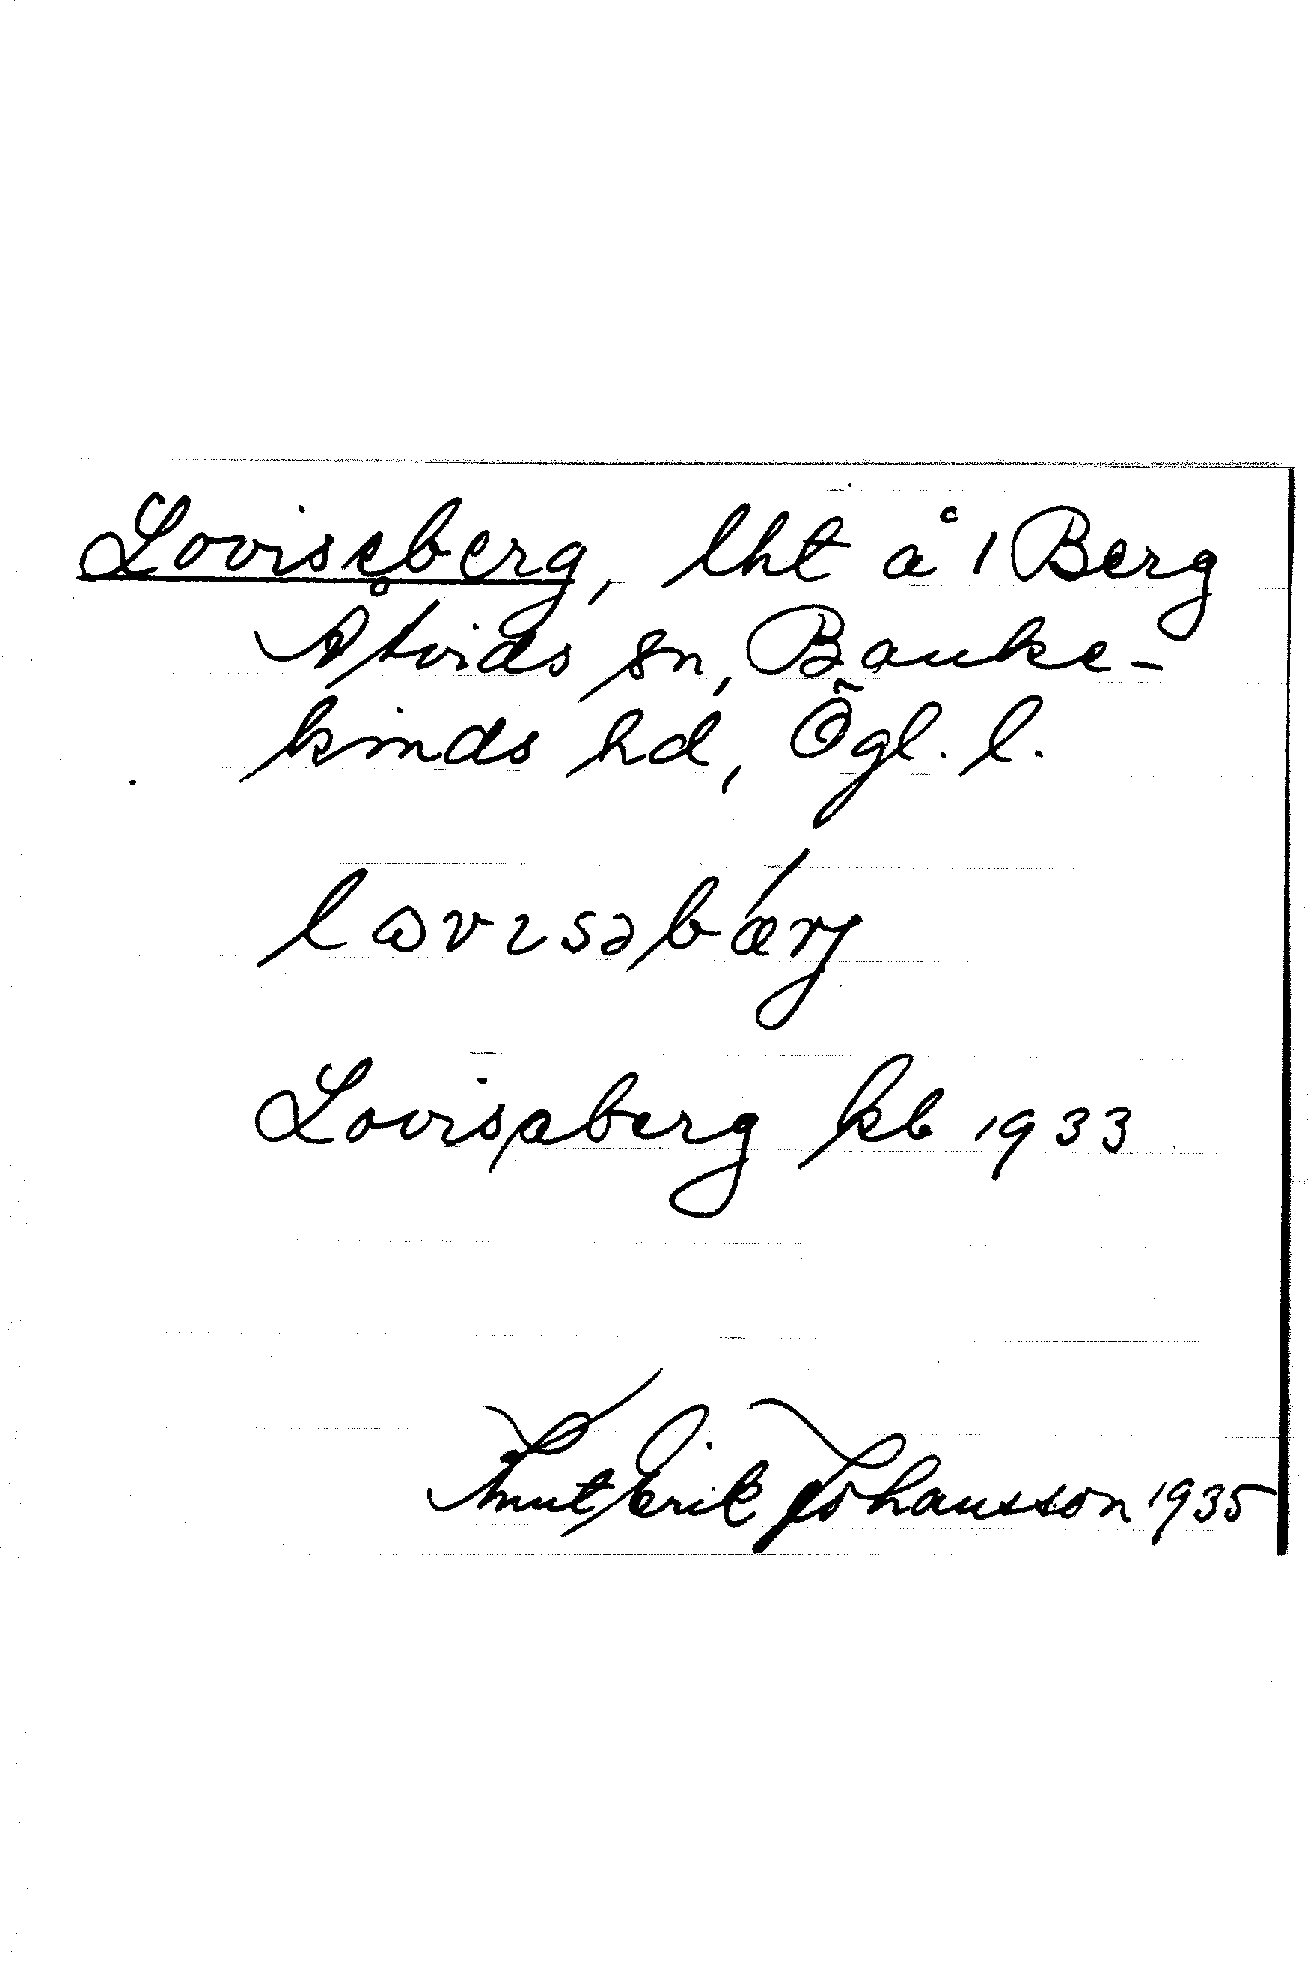 Loviseberg, lht å 1 Berg
Åtvids sn, Banke-
kinds hd, Ögl. l.
lɷvɪsəbǽrj
Lovisaberg kb 1933
Knut Erik Johansson 1935